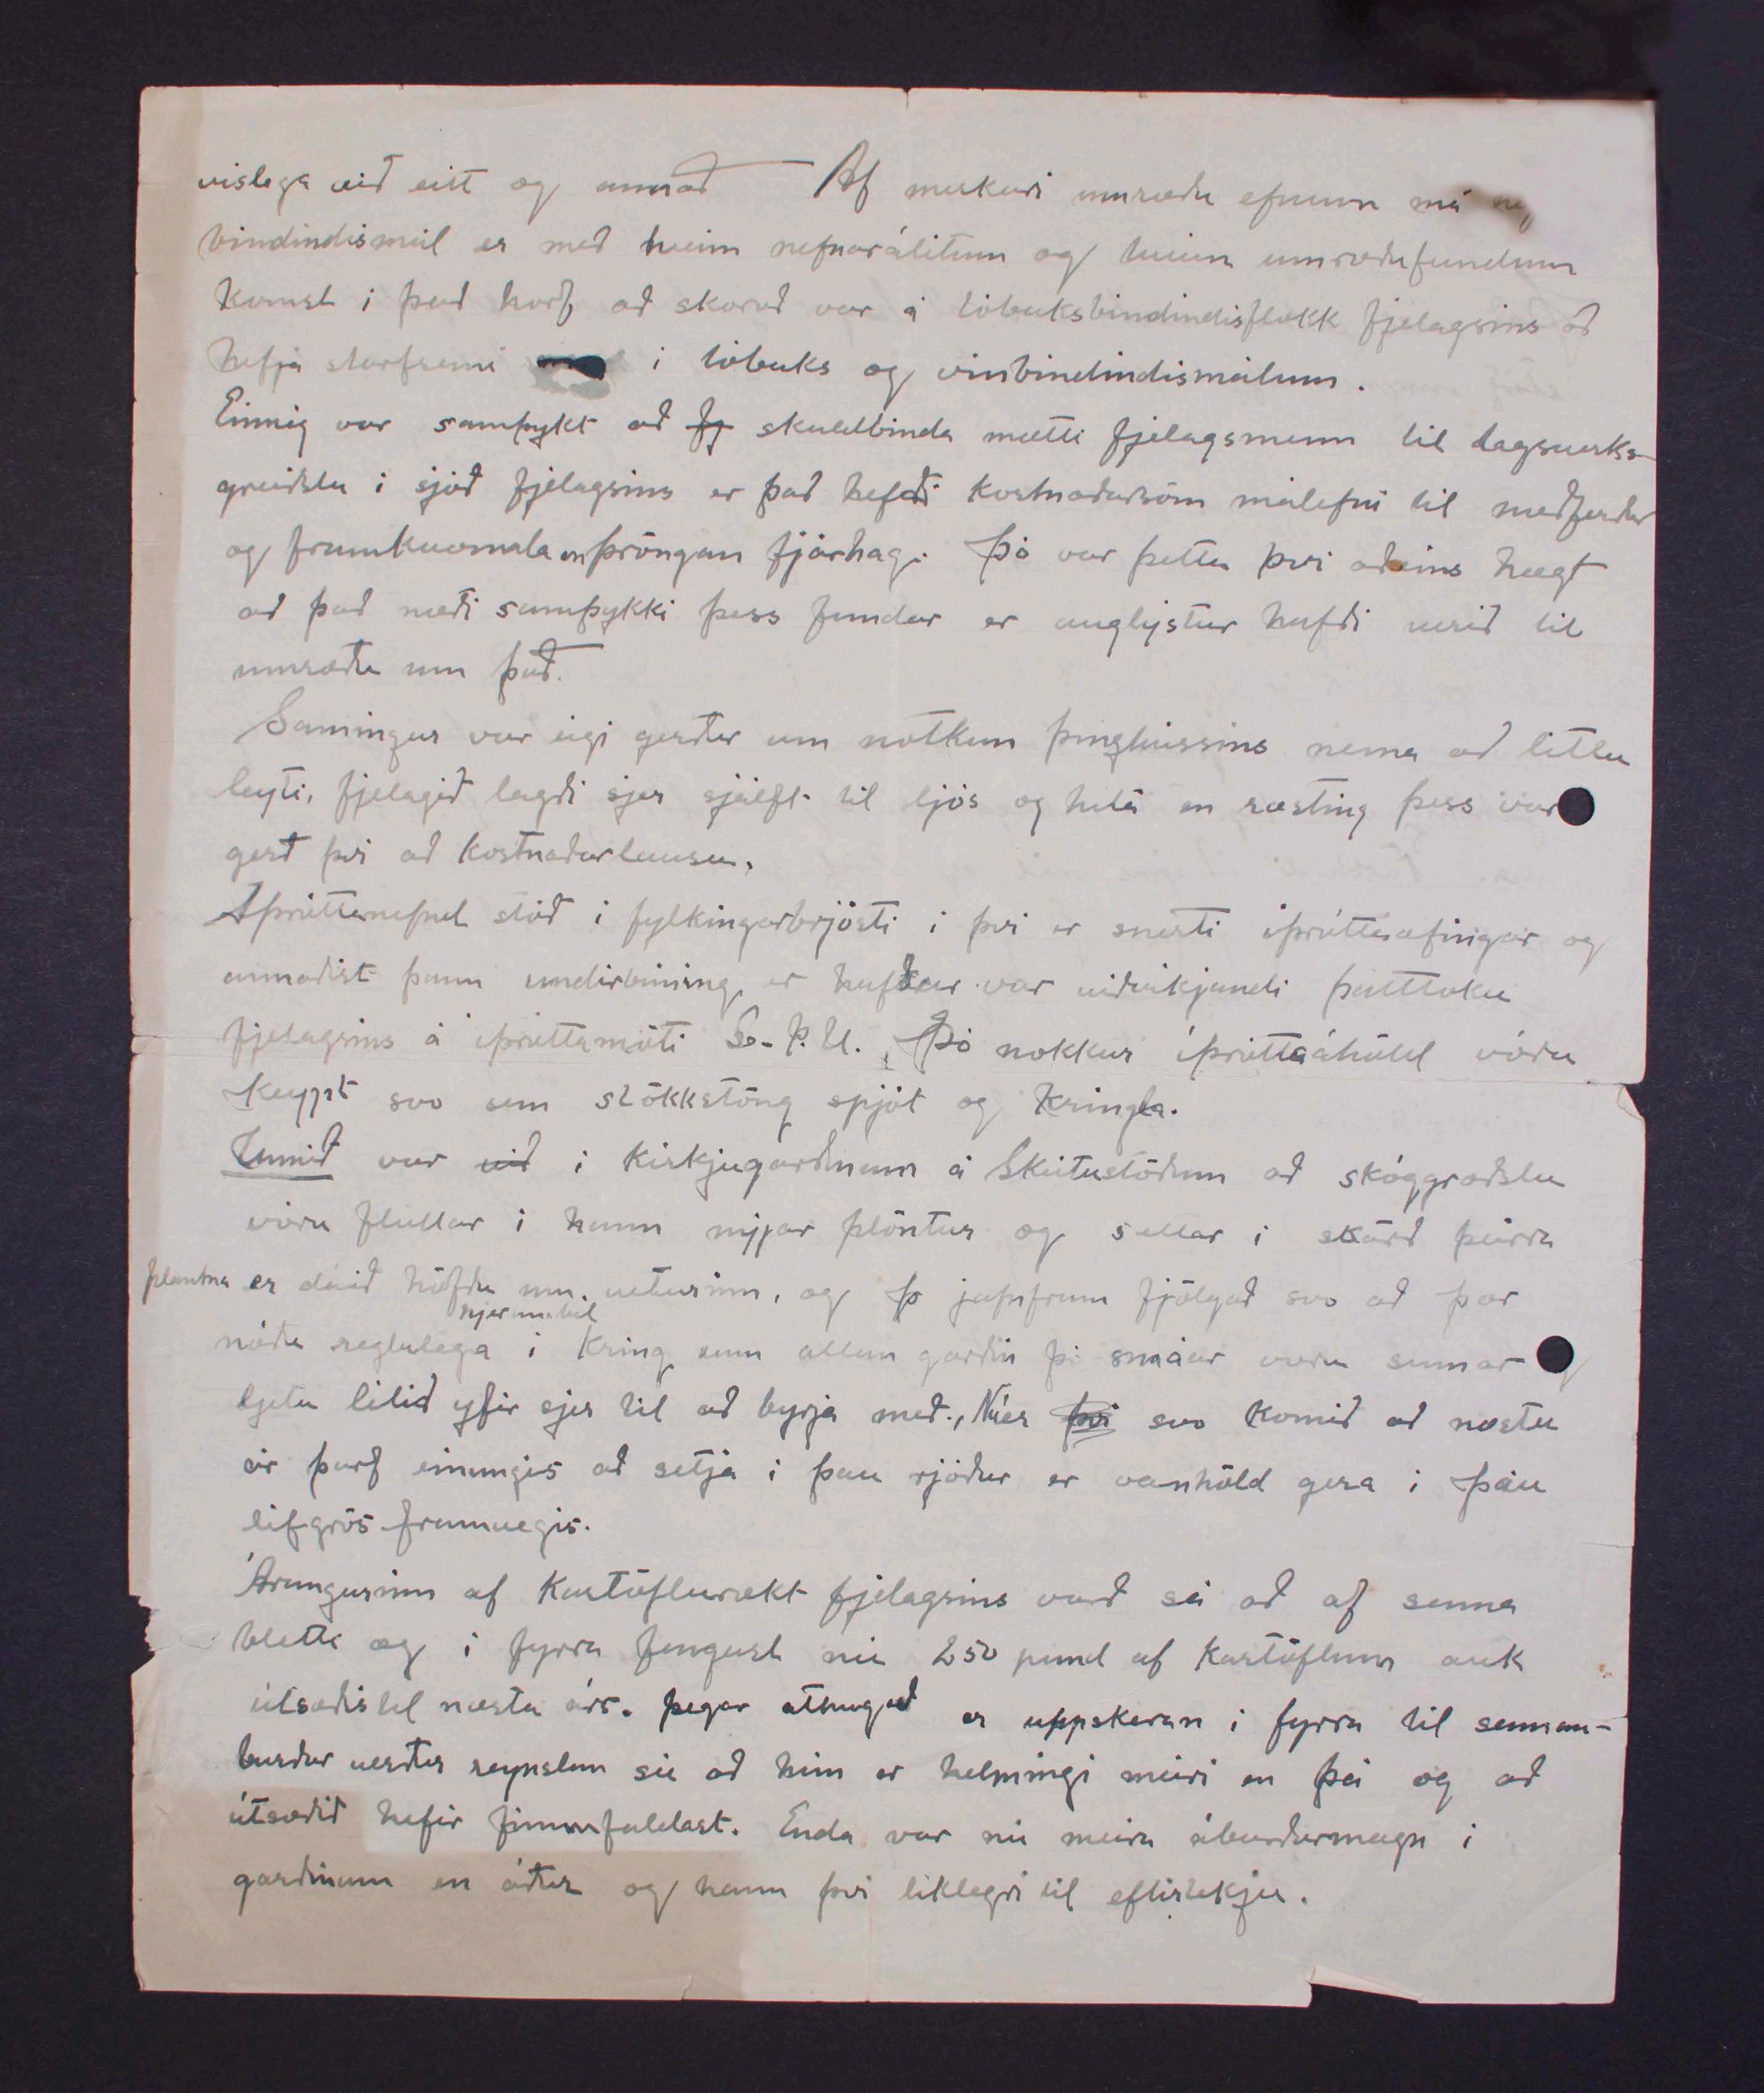 vislega við eitt og annað Af merkari umræðu efnum má
bindindismál er með tveim nefnarálitum og tveim umræðufundum
komst í það horf að skorað var á tóbaksbindindisflokk fjelagsins að
hefja starfsemi í tóbaks og vínbindindismálum.
Einnig var samþykt að fj skuldbinda mætti fjelagsmenn til dagsverks-
greiðslu í sjóð fjelagsins er það hefði kostnaðarsöm málefni til meðferðar
og framkvæmda en þröngan fjárhag. Þó var þetta því aðeins hægt
að það næði samþykki þess fundar er auglýstur hafði verið til
umræðu um það.
Samingur var eigi gerður um notkun þinghússins nema að litlu
leyti, fjelagið lagði sjer sjálft til ljós og hita en ræsting þess var
gerð því að kostnaðarlausu.
Íþróttanefnd stóð í fylkingarbrjósti í því er snerti íþróttaæfingar og
annaðist þann undirbúning er hafður var viðvikjandi þátttöku
fjelagsins á íþróttamóti S.Þ.U. Þó nokkur íþróttaáhöld vóru
keyppt svo sem stökkstöng spjót og kringla.
Unnið var við í kirkjugarðinum á Skútustöðum að skóggræðslu
vóru fluttar í hann nýjar plöntur og settar í skörð þeirra
plantna er dáið höfðu um veturinn, og þ jafnframt fjölgað svo að þær
nóðu reglulega í kring hjerumbil um allan garðin þó smáar væru sumar
ljetu lítið yfir sjer til að byrja með., Nú er því svo komið að næstu
ár þarf einungis að setja í þau rjóður er vanhöld gera í þau
lífgrös framvegis.
Árangurinn af kartöflurækt fjelagsins varð sá að af sama
bletti og í fyrra fengust nú 250 pund af kartöflum auk
útsæðis til næsta árs. Þegar athugað er uppskeran í fyrra til saman-
burðar verður reynslan sú að hún er helmingi meiri en þá og að
útsæðið hefir fimmfaldast. Enda var nú meira áburðarmagn í
garðinum en áður og hann því líklegri til eftirtekju.